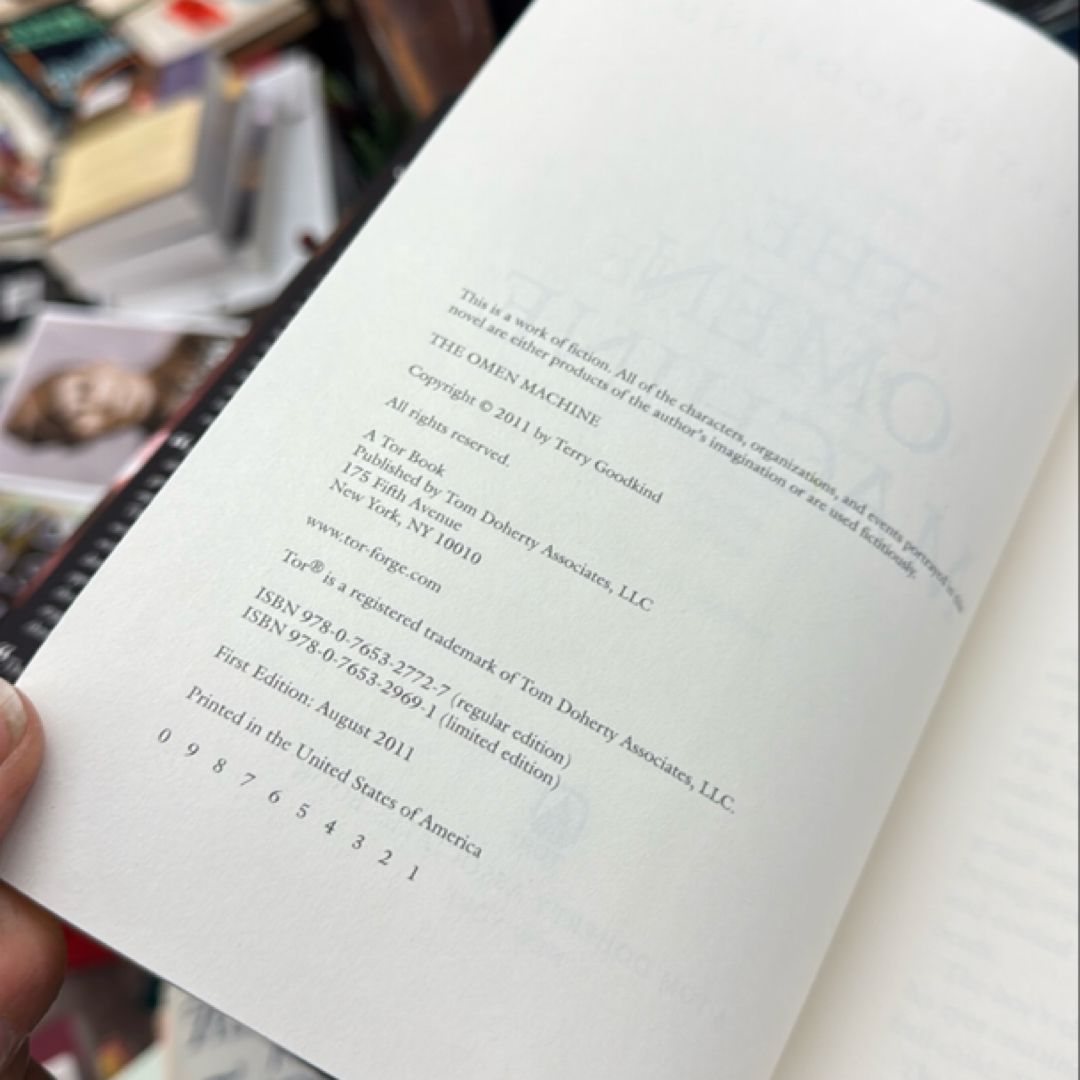 This is a work of fiction. All of the characters, organizations, and events portrayed in this
novel are either products of the author's imagination or are used fictitiously.
THE OMEN MACHINE
Copyright © 2011 by Terry Goodkind
All rights reserved.
A Tor Book
Published by Tom Doherty Associates, LLC
175 Fifth Avenue
New York, NY 10010
www.tor-forge.com
Tor® is a registered trademark of Tom Doherty Associates, LLC.
ISBN 978-0-7653-2772-7 (regular edition)
ISBN 978-0-7653-2969-1 (limited edition)
First Edition: August 2011
Printed in the United States of America
0 9 8 7 6 5 4 3 2 1